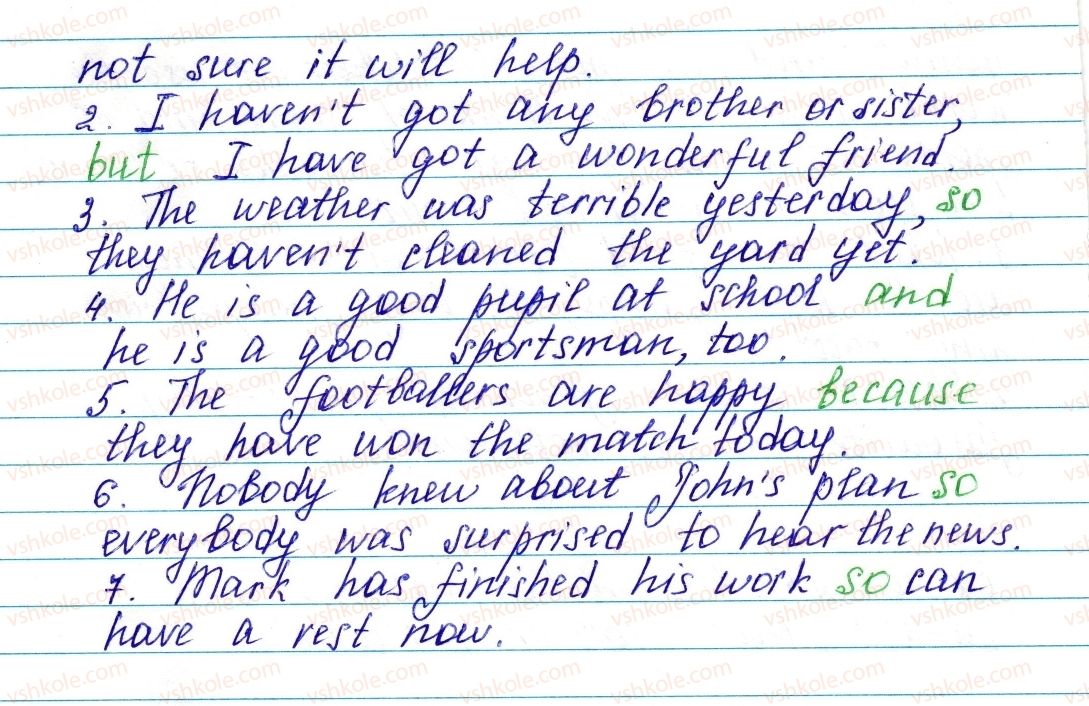 not sure it will help.
2. I haven't got any brother or sister,
but I have got a wonderful friend.
3. The weather was terrible yesterday, so
they haven't cleaned the yard yet.
4. He is a good pupil at school and
he is a good sportsman, too.
5. The footballers are happy because
they have won the match today.
6. Nobody knew about John's plan so
everybody was surprised to hear the news.
7. Mark has finished his work so can
have a rest now.
vshkole.com